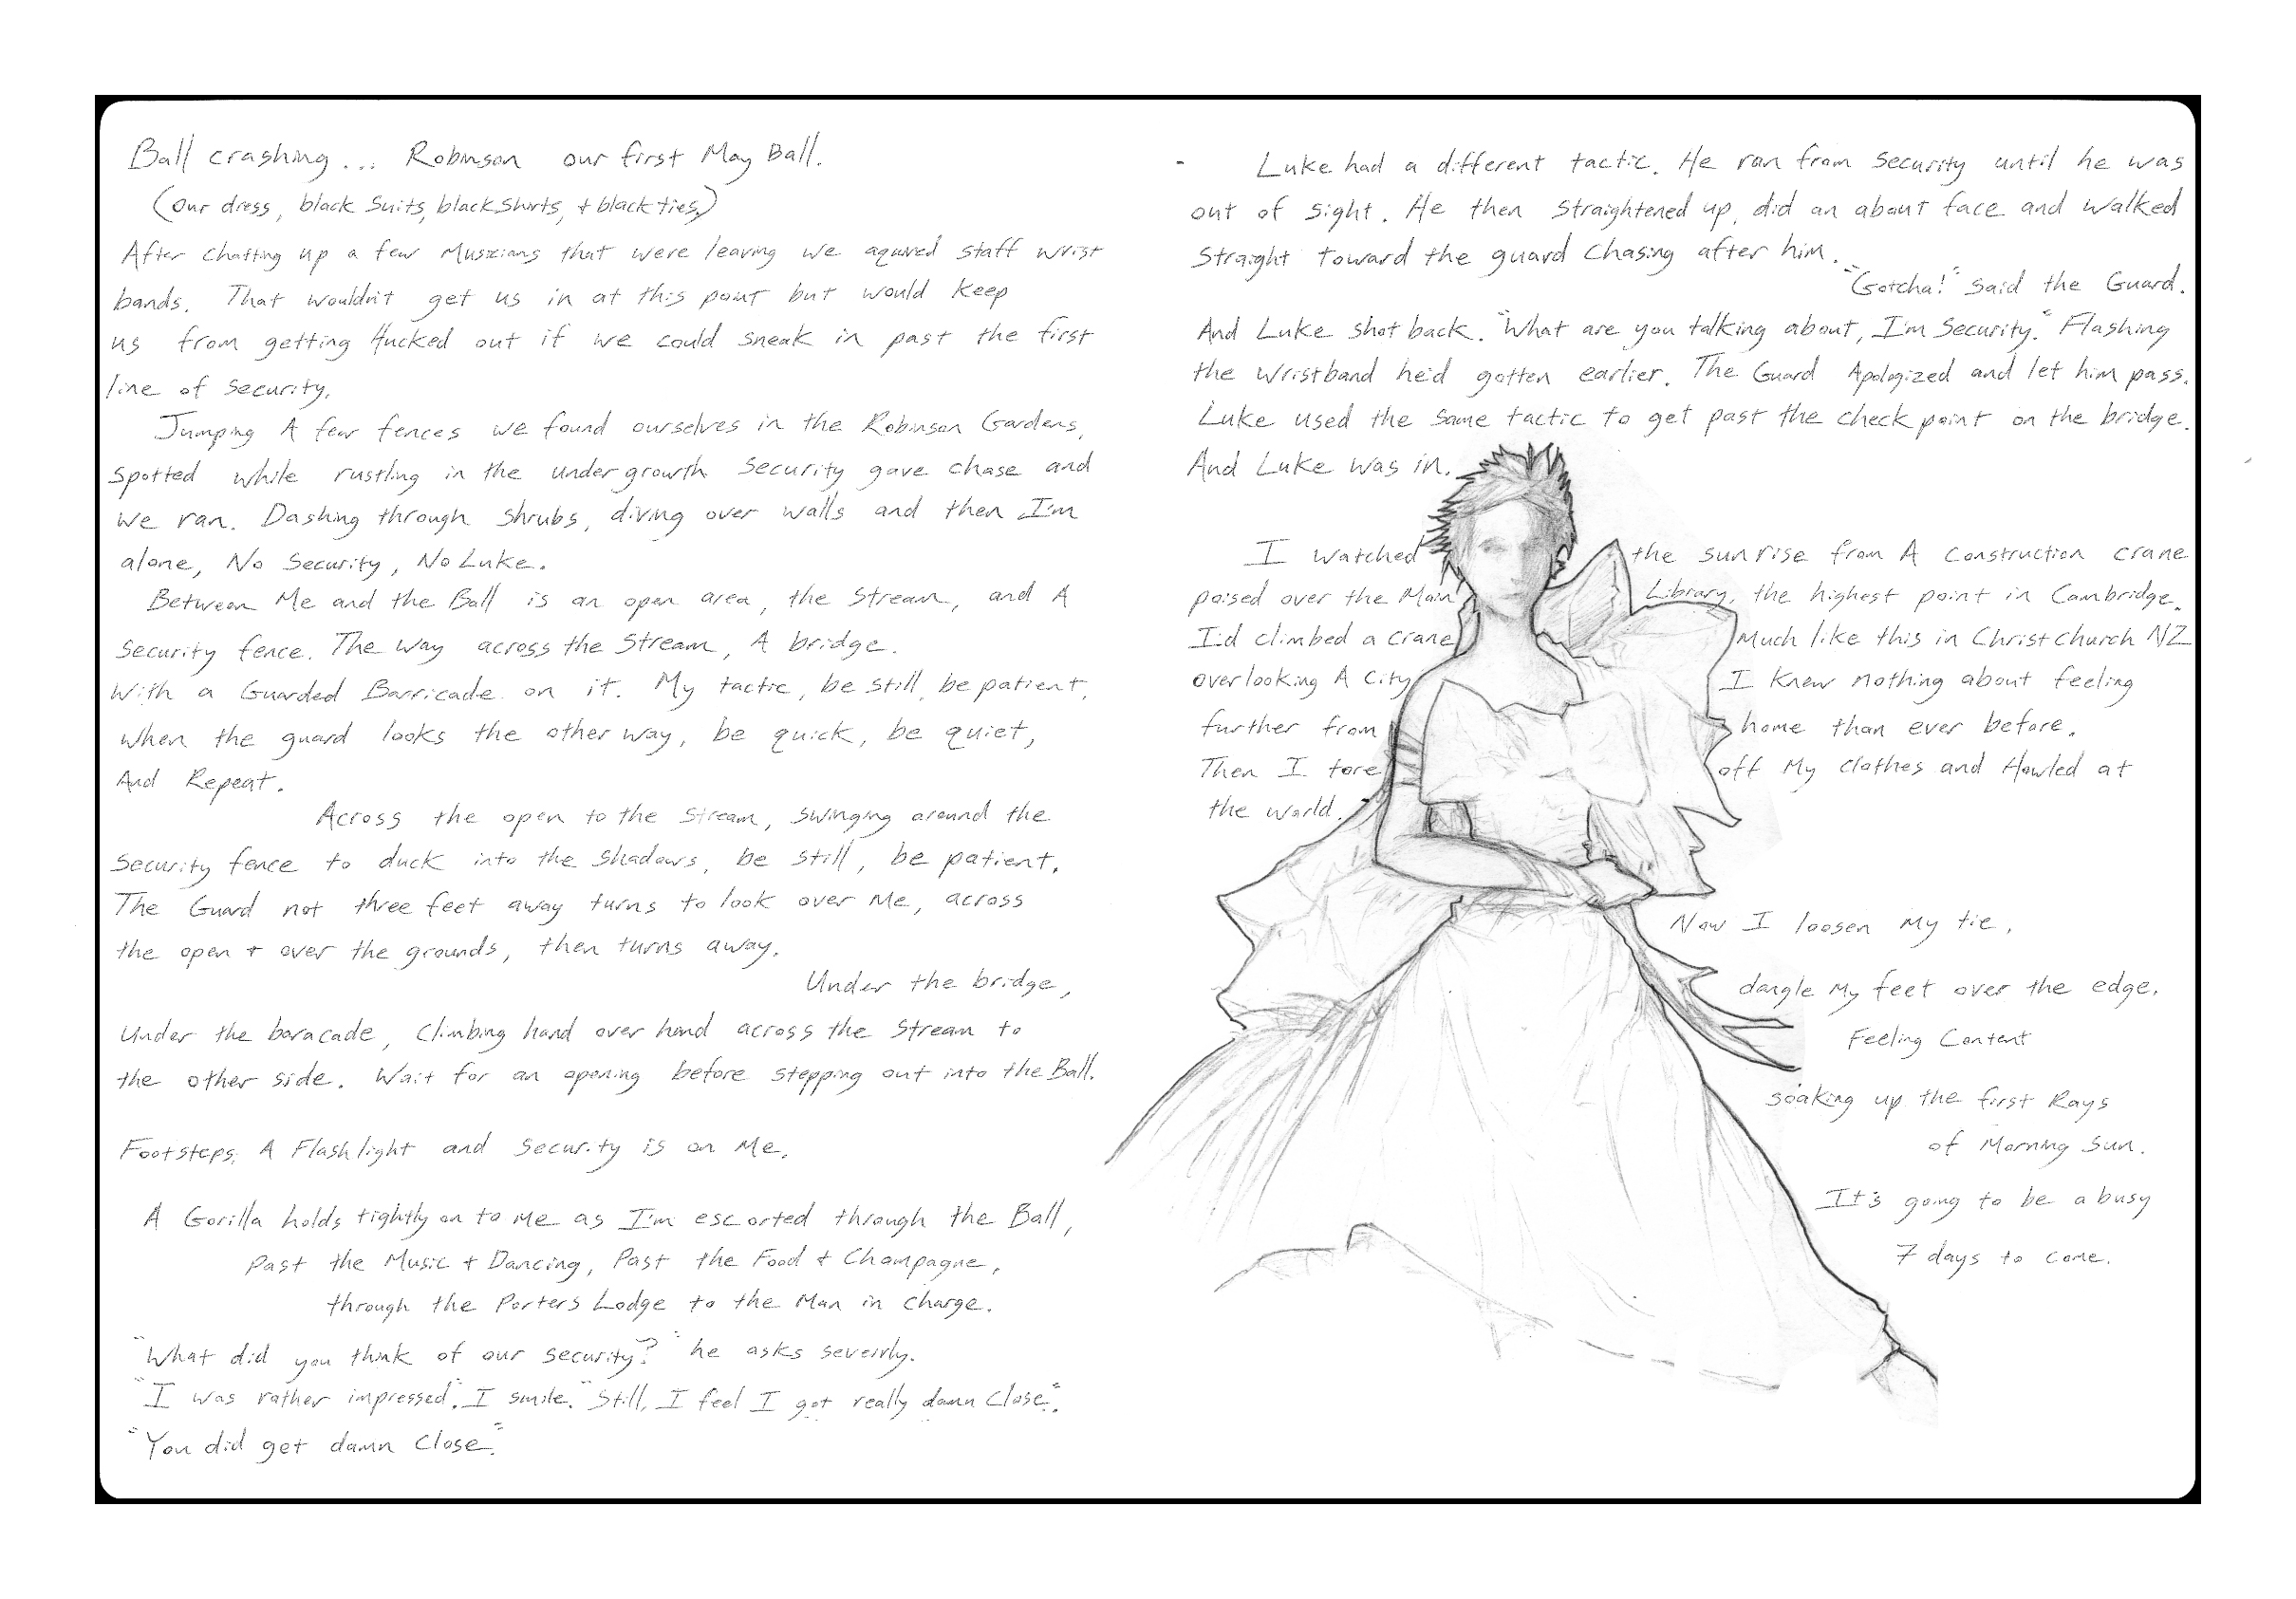 Ball crashing... Robinson our first May Ball.
(our dress, black suits, black shirts, + black ties.)
After chatting up a few Musicians that were leaving we aquired staff wrist
bands. That wouldn't get us in at this point but would keep
us from getting fucked out if we could sneak in past the first
line of security.
Jumping A few fences we found ourselves in the Robinson Gardens,
spotted while rustling in the undergrowth security gave chase and
we ran. Dashing through shrubs, diving over walls and then I'm
alone, No Security, No Luke.
Between Me and the Ball is an open area, the stream, and A
security fence. The way across the stream, A bridge.
With a Guarded Barricade on it. My tactic, be still, be patient,
when the guard looks the other way, be quick, be quiet,
And Repeat.
Across the open to the stream, swinging around the
security fence to duck into the shadows, be still, be patient.
The Guard not three feet away turns to look over Me, across
the open + over the grounds, then turns away.
Under the bridge,
under the baracade, climbing hand over hand across the stream to
the other side. Wait for an opening before stepping out into the Ball.
Footsteps, A Flashlight and security is on Me.
A Gorilla holds tightly on to me as I'm escorted through the Ball,
Past the Music + Dancing, Past the Food + Champagne,
through the Porters Lodge to the Man in charge.
"What did you think of our security?" he asks severly.
"I was rather impressed". I smile. "Still, I feel I got really damn close".
"You did get damn close".
- Luke had a different tactic. He ran from security until he was
out of sight. He then straightened up, did an about face and walked
straight toward the guard chasing after him.
"Gotcha!" said the Guard.
And Luke shot back. "What are you talking about, I'm security." Flashing
the wristband he'd gotten earlier. The Guard Apologized and let him pass.
Luke used the same tactic to get past the check point on the bridge.
And Luke was in.
I watched the sunrise from A construction crane
poised over the Main Library, the highest point in Cambridge.
I'd climbed a crane Much like this in Christchurch NZ
overlooking A City I knew nothing about feeling
further from home than ever before.
Then I tore off My clothes and Howled at
the world.
Now I loosen My tie,
dangle My feet over the edge.
Feeling Content
soaking up the first Rays
of Morning Sun.
It's going to be a busy
7 days to come.